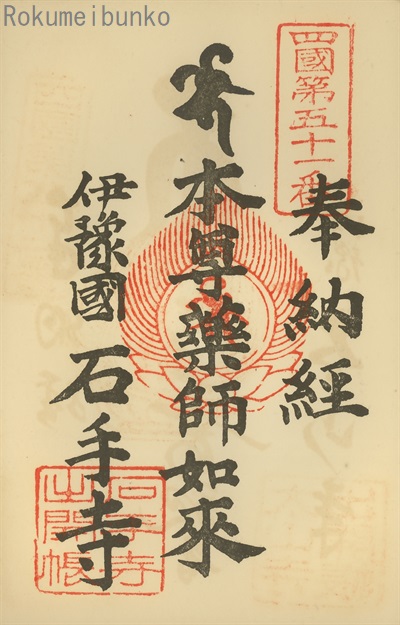 Rokumeibunko
四國第五十一番
奉納經
本尊藥師如來
伊豫國 石手寺
石手寺
出開帳